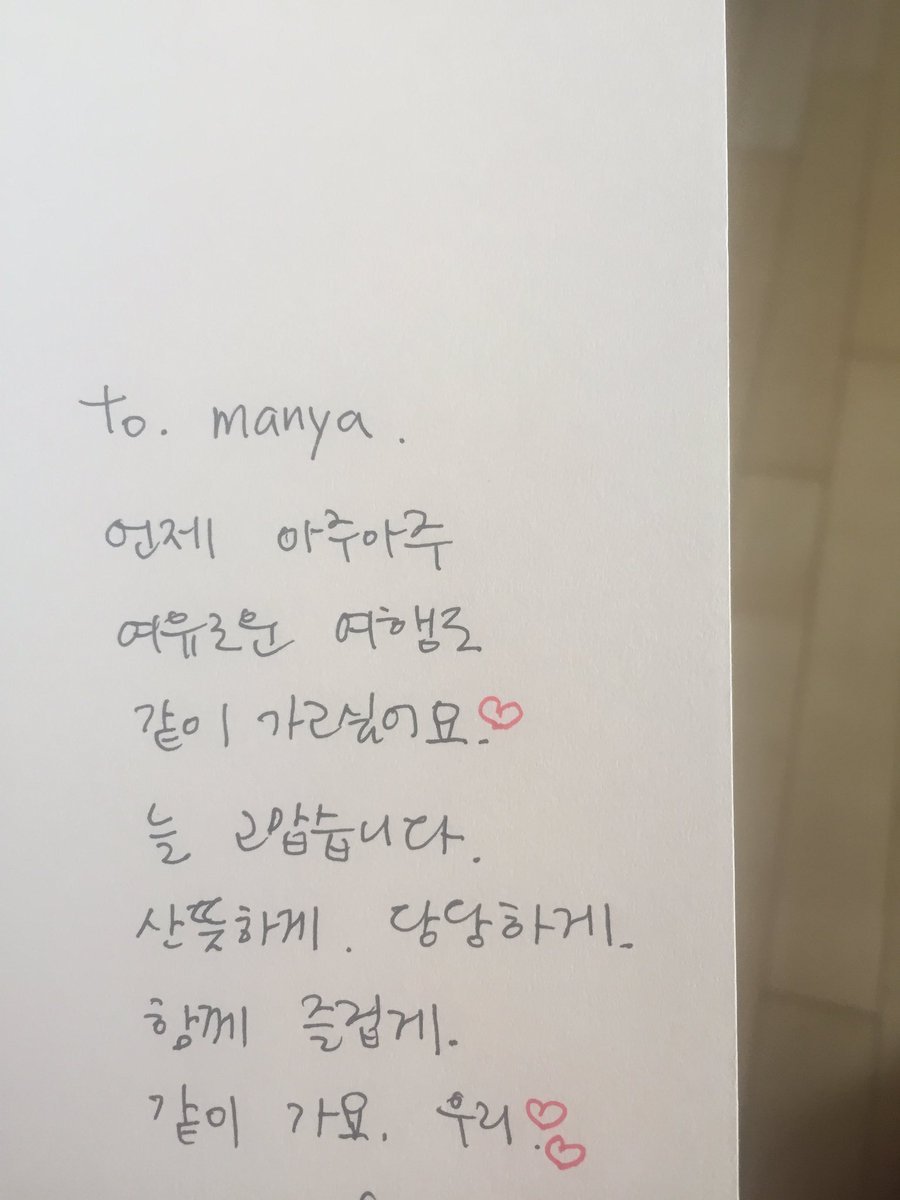 to. manya.
언제 아주아주
여유로운 여행도
같이 가고싶어요.
늘 고맙습니다.
산뜻하게. 당당하게.
함께 즐겁게.
같이 가요. 우리.